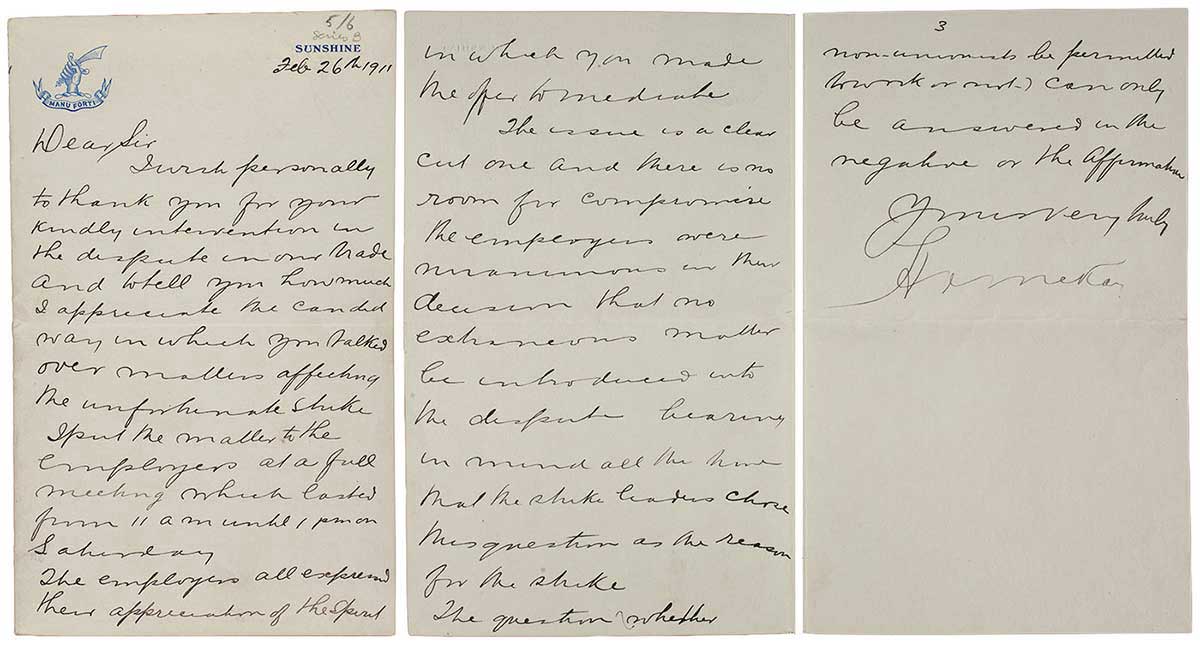 5/6
Series B
SUNSHINE
Feb 26th 1911
MANU FORTI
Dear Sir
I wish personally
to thank you for your
kindly intervention in
the dispute in our trade
and to tell you how much
I appreciate the candid
way in which you talked
over matters affecting
the unfortunate strike
I put the matter to the
employers at a full
meeting which lasted
from 11 am until 1 pm on
Saturday
The employers all expressed
their appreciation of the spirit
in which you made
the offer to mediate
The issue is a clear
cut one and there is no
room for compromise
the employers were
unanimous in their
decision that no
extraneous matter
be introduced into
the dispute bearing
in mind all the time
that the strike leaders chose
this question as the reason
for the strike
The question (whether
3
non-unionists be permitted
to work or not-) can only
be answered in the
negative or the affirmative
Yours very truly